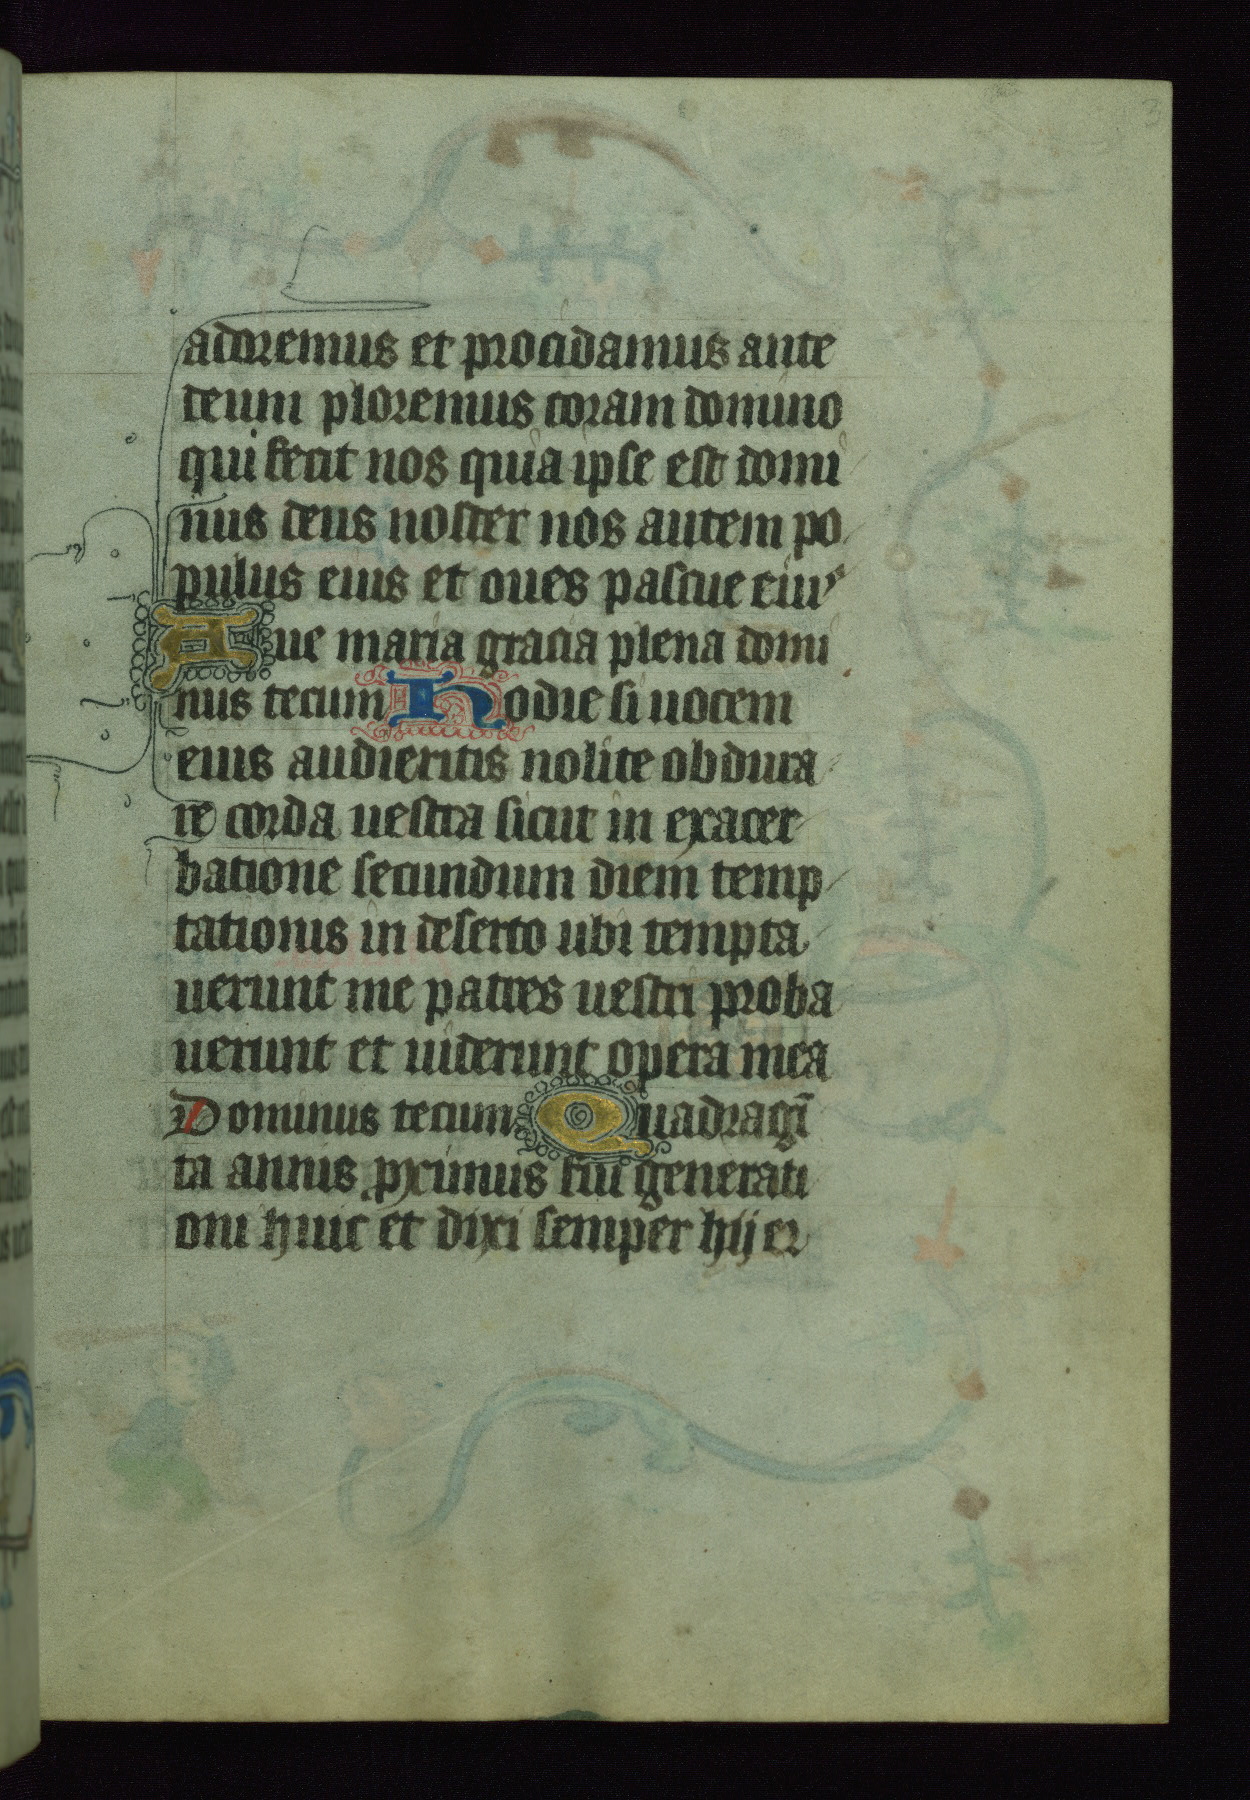 adoremus et procidamus ante
deum ploremus coram domino
qui fecit nos quia ipse est domi
nus deus noster nos autem po
pulus eius et oues pascue eiuꝰ
Aue maria gracia plena domi
nus tecum Hodie si uocem
eius audieritis nolite obdura
re corda uestra sicut in exacer
batione secundum diem temp
tationis in deserto ubi tempta
uerunt me patres uestri proba
uerunt et uiderunt opera mea
Dominus tecum Quadragī
ta annis ꝓximus fui generati
oni huic et dixi semper hij er